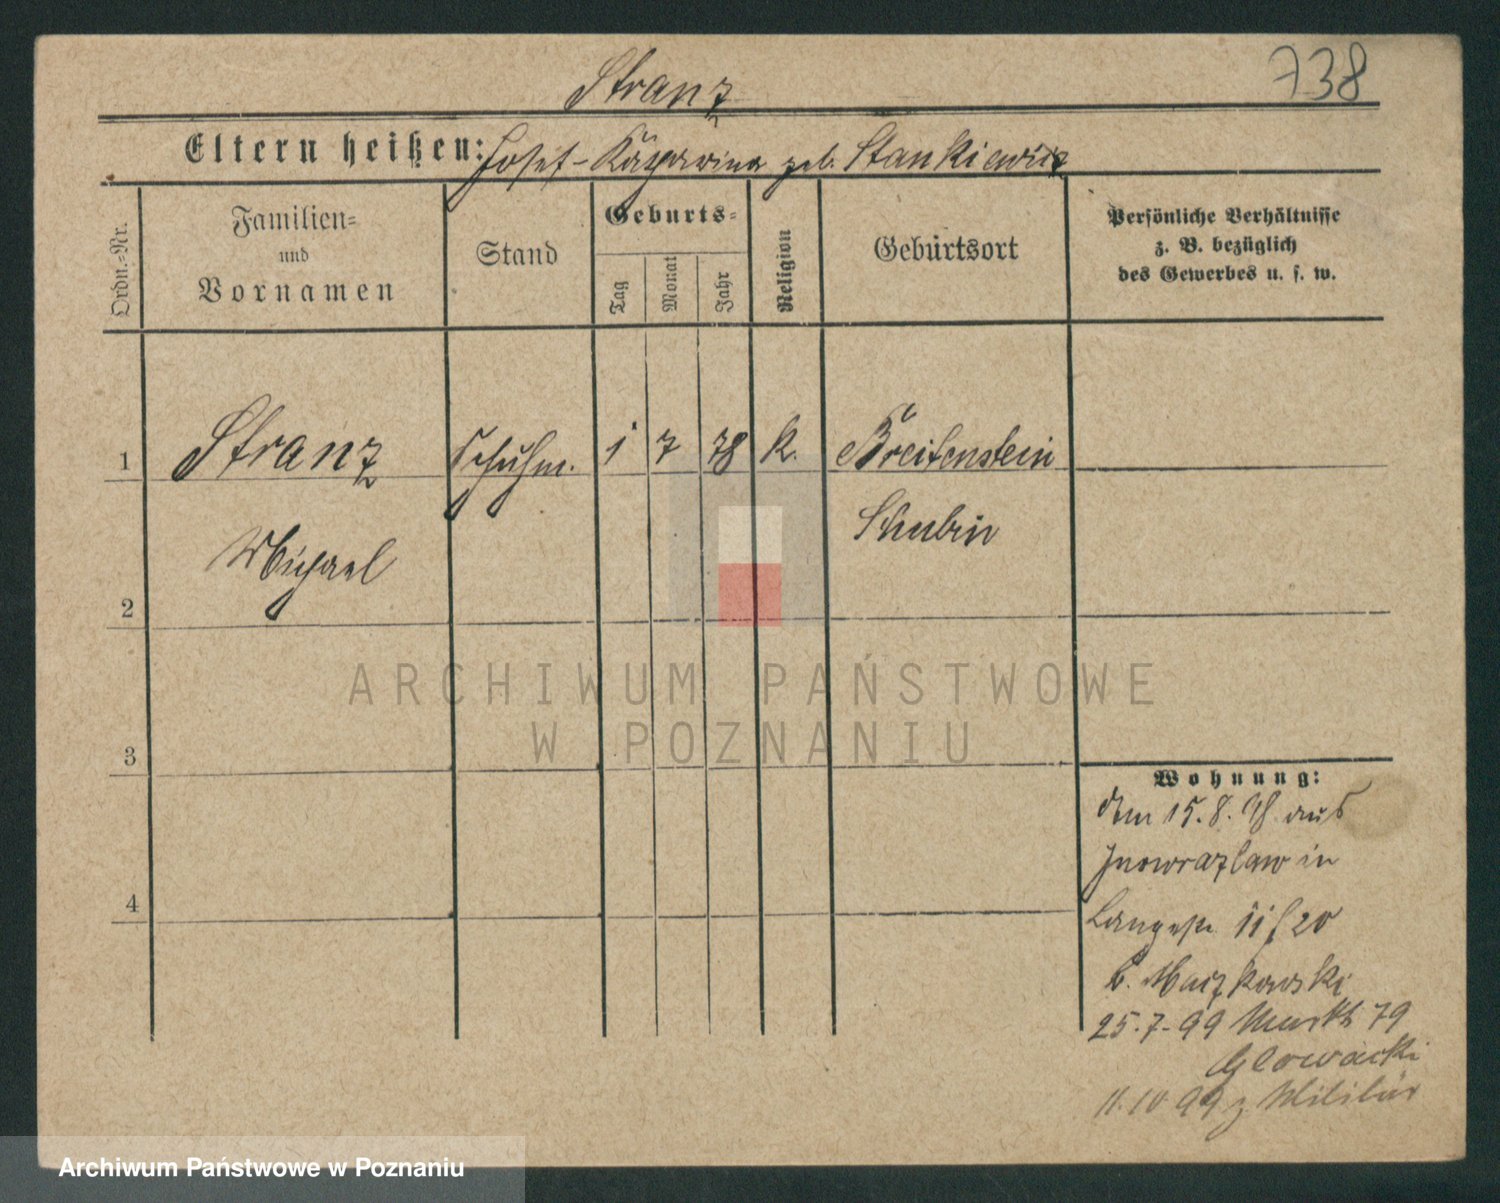 738
Stranz
Eltern heißen: Josef - geb. Stankiewicz
Ordn.-Nr.
Familien-
und
Vornamen
Stand
Geburts-
Tag
Monat
Jahr
Religion
Geburtsort
Persönliche Verhältnisse
z. B. bezüglich
des Gewerbes u. s. w.
1 Stranz Schuhm. 1 7 78 k. Breitenstein
Michael Schubin
2
3
4
Wohnung:
15.8. 98 aus
Inowrazlaw in
Langestr. 11 f 20
b. Maczkowski
25.7.99 Markt 79
Glowacki
11.10 99 z Militär
ARCHIWUM PAŃSTWOWE
W POZNANIU
Archiwum Państwowe w Poznaniu